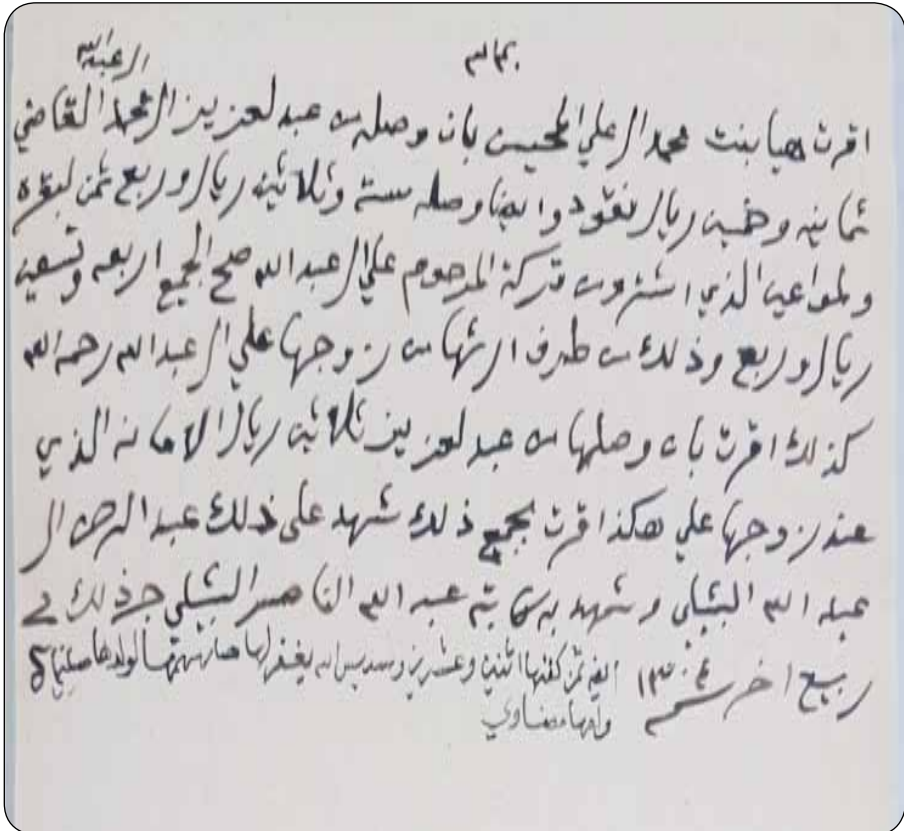 بيانه العبدالله
اقرت هيا بنت محمد ال علي المحيسن بان وصله من عبد لعزيز ال محمد القاضي
ثمانيه وخمسين ريال نقود وايضا وصله ستة وثلاثين ريال وربع ثمن لبقره
ولمواعين الذي اشترت من تركة المرحوم علي ال عبد الله صح الجميع اربعه وتسعين
ريال وربع وذلك من طرف ارثها من زوجها علي ال عبد الله رحمه الله
كذلك اقرت بان وصلها من عبد لعزيز ثلاثين ريال الامانه الذي
عند زوجها علي هكذا اقرت بجميع ذلك شهد على ذلك عبد الرحمن ال
عبد الله البسام وشهد به كاتبه عبد الله الناصر الشبلي جر ذلك في
ربيع اخر سنة ١٣٠٤ ايضا ثمن كفنها اثنين وعشرين وسديس الله يغفر لها